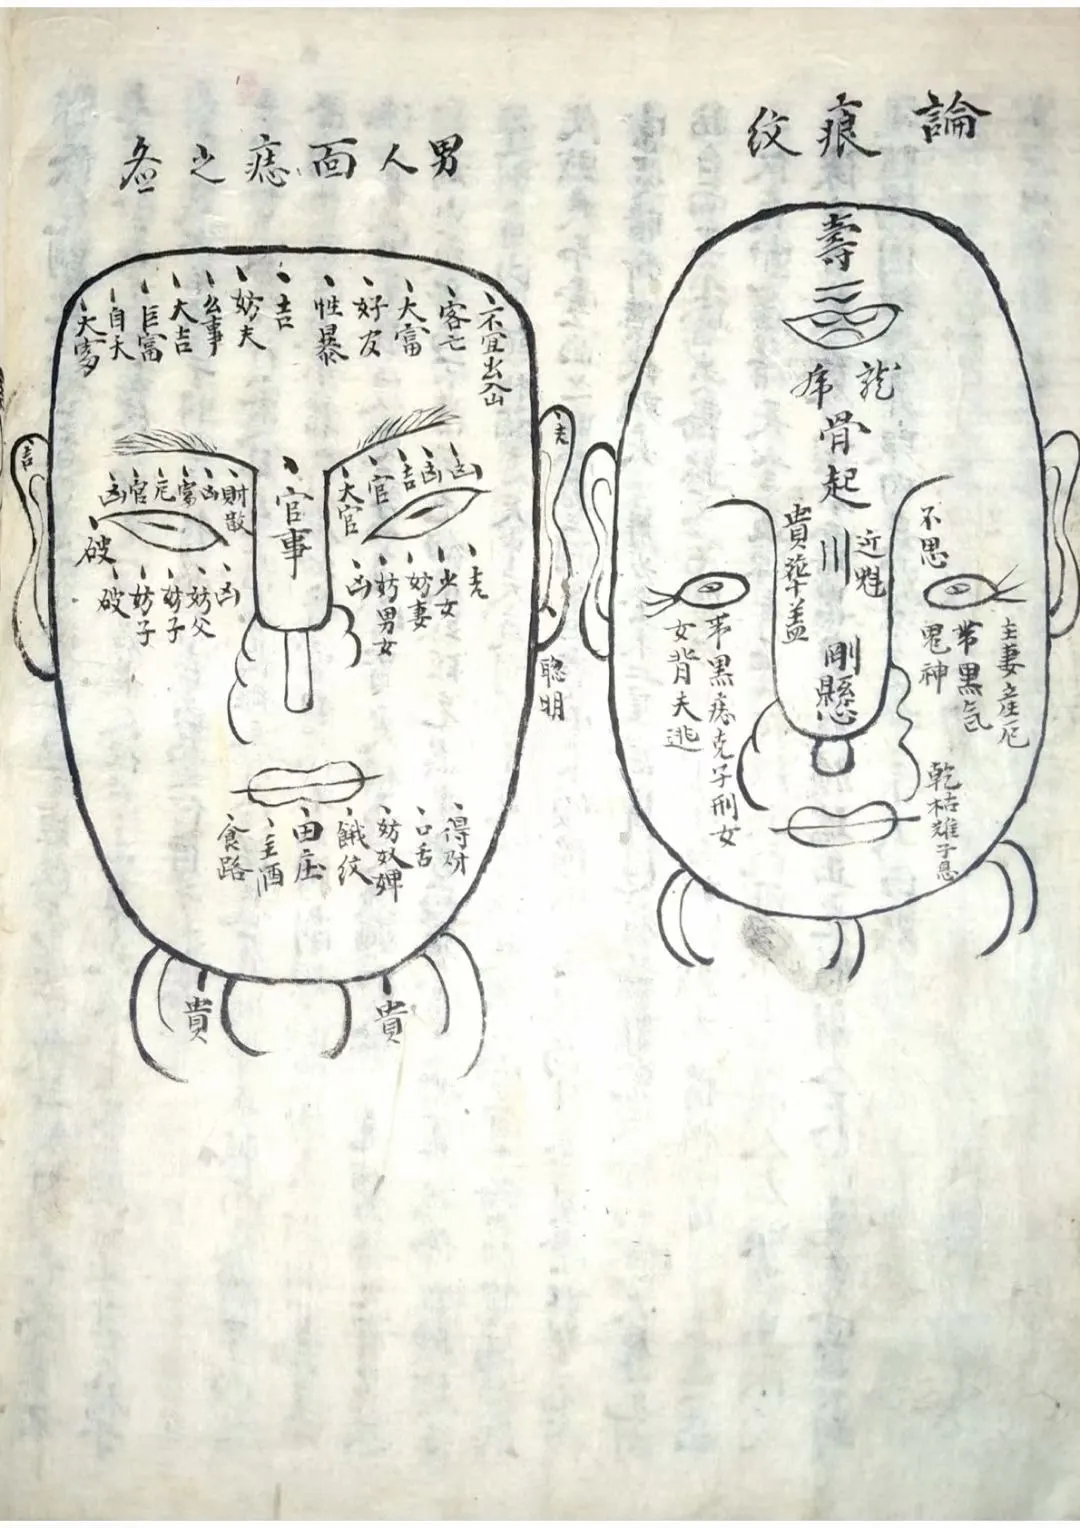 論痕紋
壽
龍
骨起
川
近魁
貴華盖
剛懸
不思
鬼神
帯黒气
主妻産厄
乾枯雄子息
帯黒痣克子刑女
女背夫逃
男人面痣之圖
不宜出入山
客亡
大富
好友
性暴
吉
妨夫
公事
大吉
巨富
自夭
大富
夫
吉
凶
凶
吉
官
大官
官事
財散
凶
富
厄
官
凶
破
克
少女
妨妻
妨男女
凶
凶
妨父
妨子
妨子
破
聰明
得财
口舌
妨奴婢
餓紋
田庄
主酒
食路
貴
貴